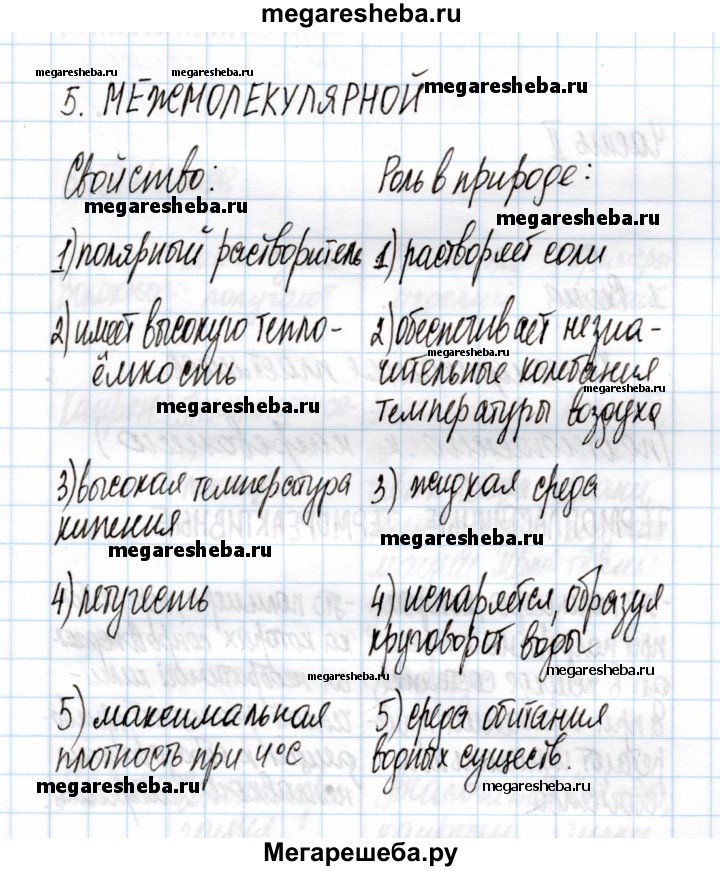 megaresheba.ru
megaresheba.ru megaresheba.ru
5. МЕЖМОЛЕКУЛЯРНОЙ megaresheba.ru
Свойство: Роль в природе:
megaresheba.ru megaresheba.ru
1) полярный растворитель 1) растворяет соли
2) имеет высокую тепло- 2) обеспечивает незна-
megaresheba.ru
ёмкость чительные колебания
megaresheba.ru megaresheba.ru
температуры воздуха
3) высокая температура 3) жидкая среда
кипения
megaresheba.ru megaresheba.ru
4) летучесть 4) испаряется, образуя
круговорот воды
megaresheba.ru megaresheba.ru
5) максимальная 5) среда обитания
плотность при 4°С водных существ.
megaresheba.ru megaresheba.ru
Мегарешеба.ру